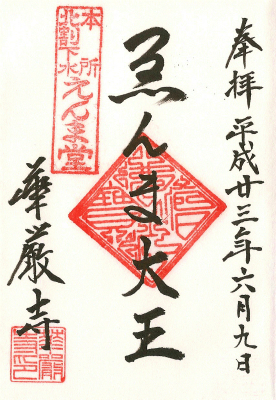 奉拝 平成廿三年六月九日
ゑんま大王
本所
北割下水
えんま堂
華厳寺